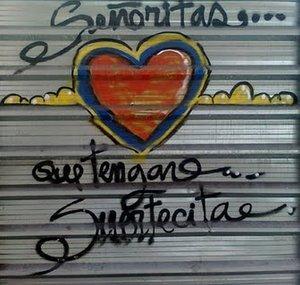 Señoritas,...
que tengan...
Suertecita